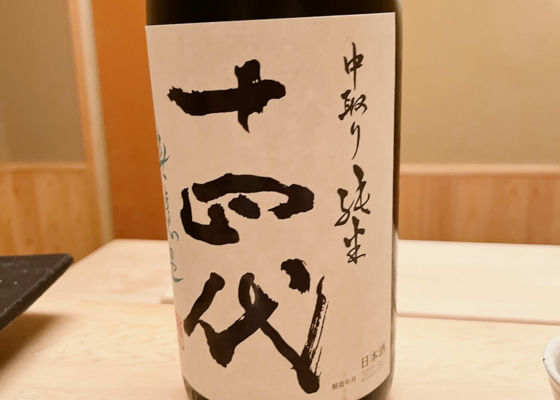 中取り純米
十四代
日本酒
製造年月